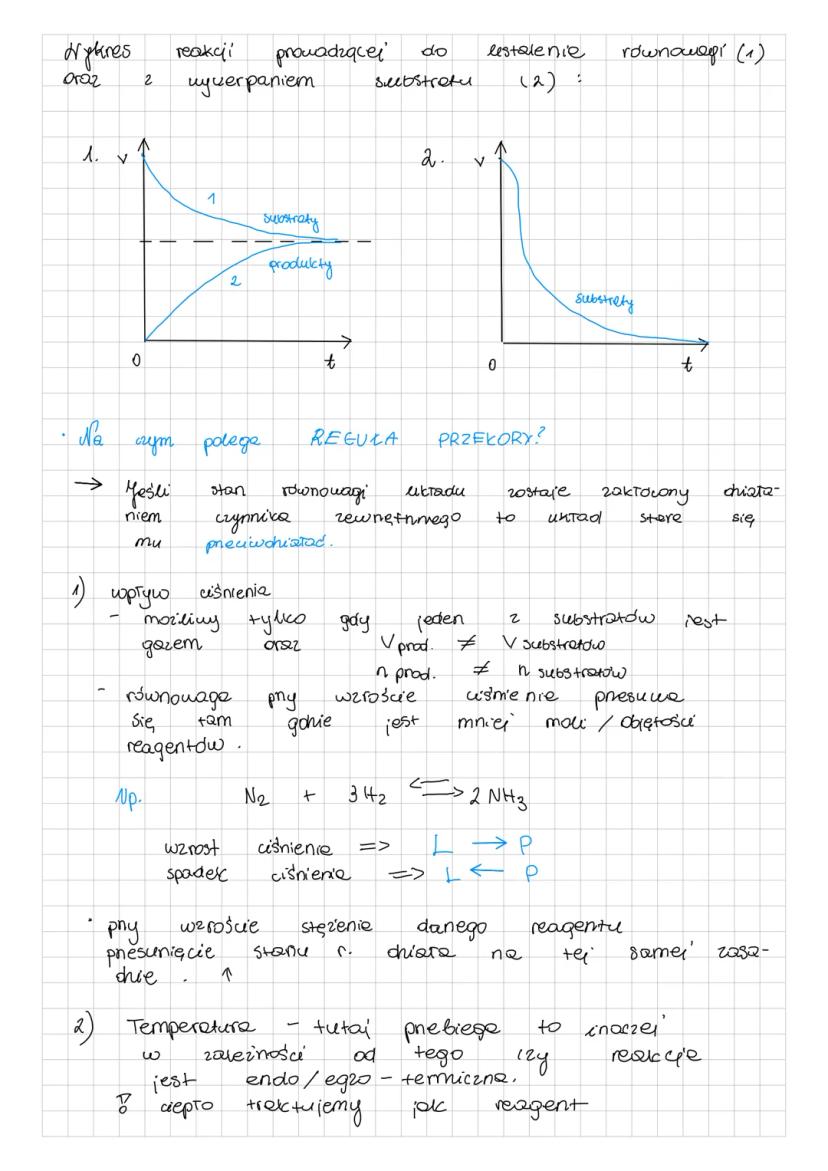 Wykres reakcji prowadzącej do ustalenia równowagi (1)
oraz z wyczerpaniem substratu (2) :
1. v 1 substraty
produkty
2
0 t
2. v
substraty
0 t
· Na czym polega REGUŁA PRZEKORY?
→ Jeśli stan równowagi układu zostaje zakłócony działa-
niem czynnika zewnętrznego to układ stara się
mu przeciwdziałać.
1) wpływ ciśnienia
- możliwy tylko gdy jeden z substratów jest
gazem oraz V prod. ≠ V substratów
n prod. ≠ n substratów
- równowaga przy wzroście ciśnienia przesuwa
się tam gdzie jest mniej moli / objętości
reagentów .
Np. N2 + 3H2 ⇌ 2 NH3
wzrost ciśnienia => L → P
spadek ciśnienia => L ← P
· przy wzroście stężenia danego reagentu
przesunięcie stanu r. działa na tej samej zasa-
dzie . ↑
2) Temperatura - tutaj przebiega to inaczej
w zależności od tego czy reakcja
jest endo / egzo - termiczna.
ciepło traktujemy jak reagent